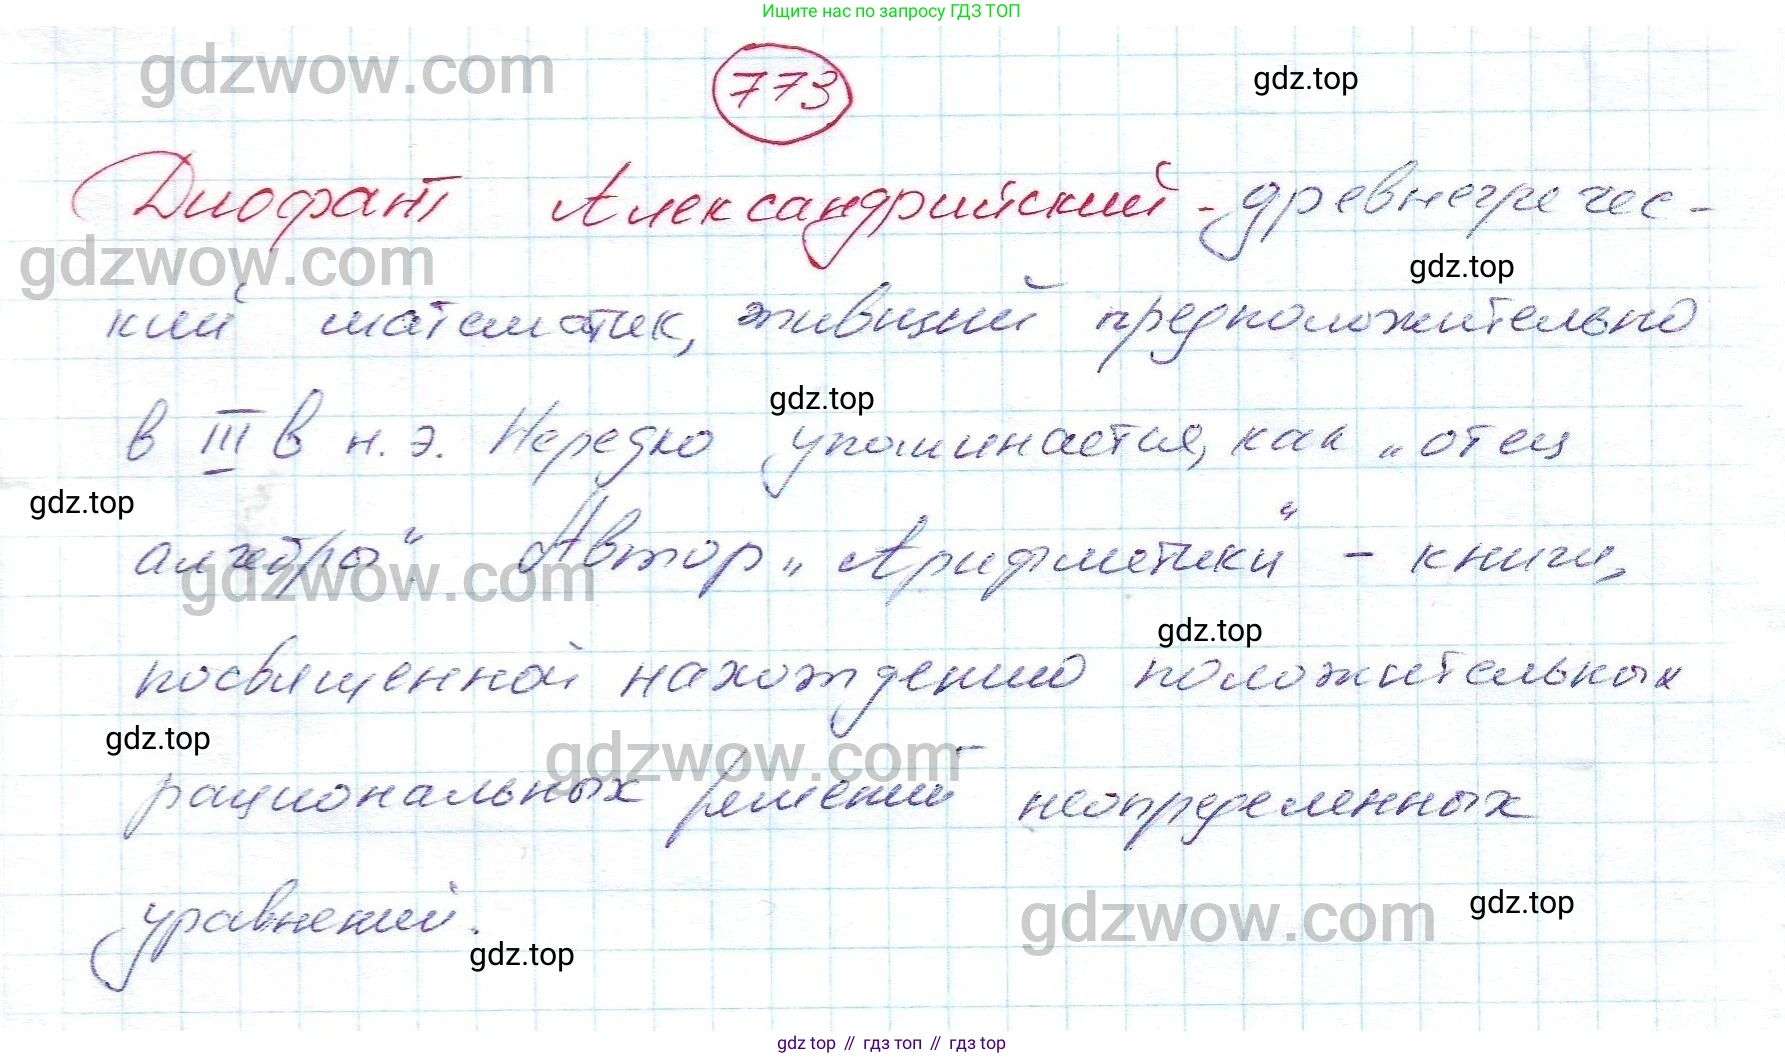 Ищите нас по запросу ГДЗ ТОП
gdzwow.com
773
gdz.top
Диофант Александрийский - древнегречес-
gdzwow.com
gdz.top
кий математик, живший предположительно
gdz.top
в III в н.э. Нередко упоминается, как „отец
gdz.top
алгебры“. Автор „Арифметики“ - книги,
gdzwow.com
gdz.top
посвященной нахождению положительных
gdz.top
gdzwow.com
рациональных решений неопределенных
gdz.top
уравнений.
gdzwow.com
gdz.top
gdz top // гдз топ // гдз top